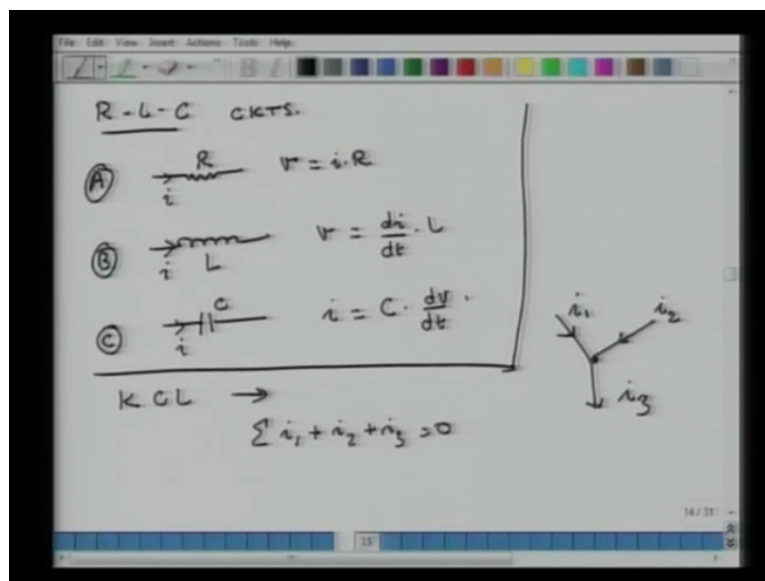 File Edit View Insert Actions Tools Help
R-L-C CKTS.
A R i v = i.R
B i L v = di/dt . L
C C i i = C . dv/dt .
i1 i2
i3
KCL →
Σ i1 + i2 + i3 = 0
14 / 31
15